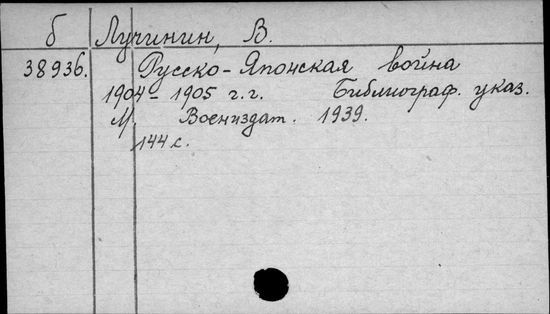 б Лучинин, В.
38936. Русско-Японская война
1904-1905 г.г. Библиограф. указ.
М. Воениздат. 1939.
144 с.